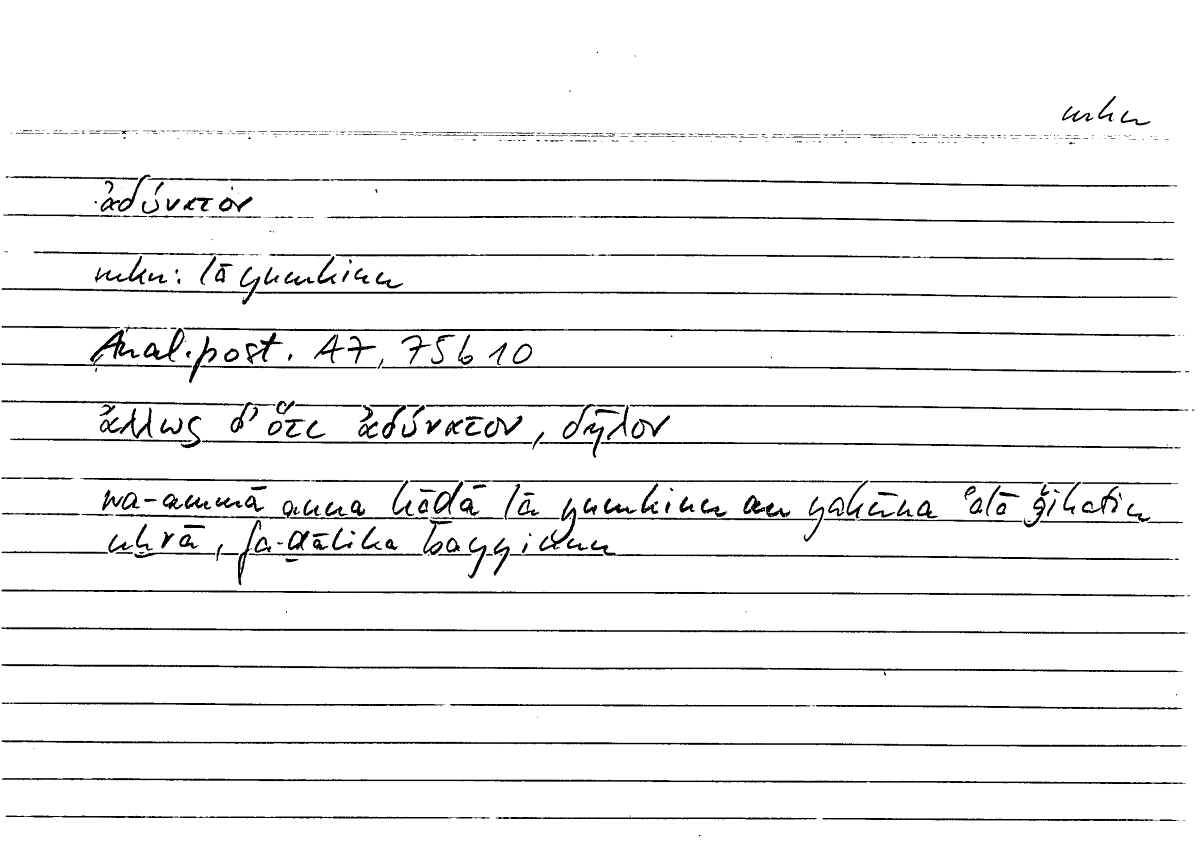 mkn
ἀδύνατον
mkn: lā yumkinu
Anal. post. A7, 75b10
ἄλλως δ' ὅτι ἀδύνατον, δῆλον
wa-ammā anna hāḏā lā yumkinu an yakūna ʿalā ǧihatin
uḫrā, fa-ḏālika bayyinun